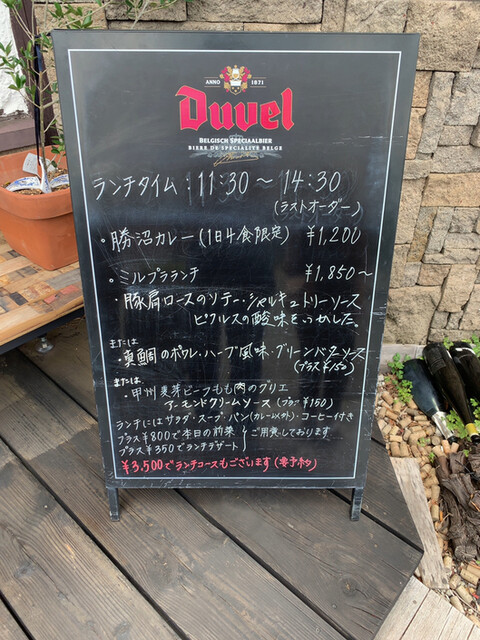 ANNO 1871
Duvel
BELGISCH SPECIAALBIER
BIERE DE SPECIALITE BELGE
ランチタイム：11:30～14:30
(ラストオーダー)
・勝沼カレー(1日4食限定) ¥1,200
・ミルプラランチ ¥1,850～
・豚肩ロースのソテー・シャルキュトリーソース
ピクルスの酸味をいかした。
または
・真鯛のポワレ・ハーブ風味・グリーンバターソース
(プラス¥150)
または
・甲州麦芽ビーフもも肉のグリエ
アーモンドクリームソース(プラス¥150)
ランチにはサラダ・スープ・パン(カレー以外)・コーヒー付き
プラス¥800で本日の前菜
プラス¥350でランチデザート
ご用意しております
¥3,500でランチコースもございます(要予約)